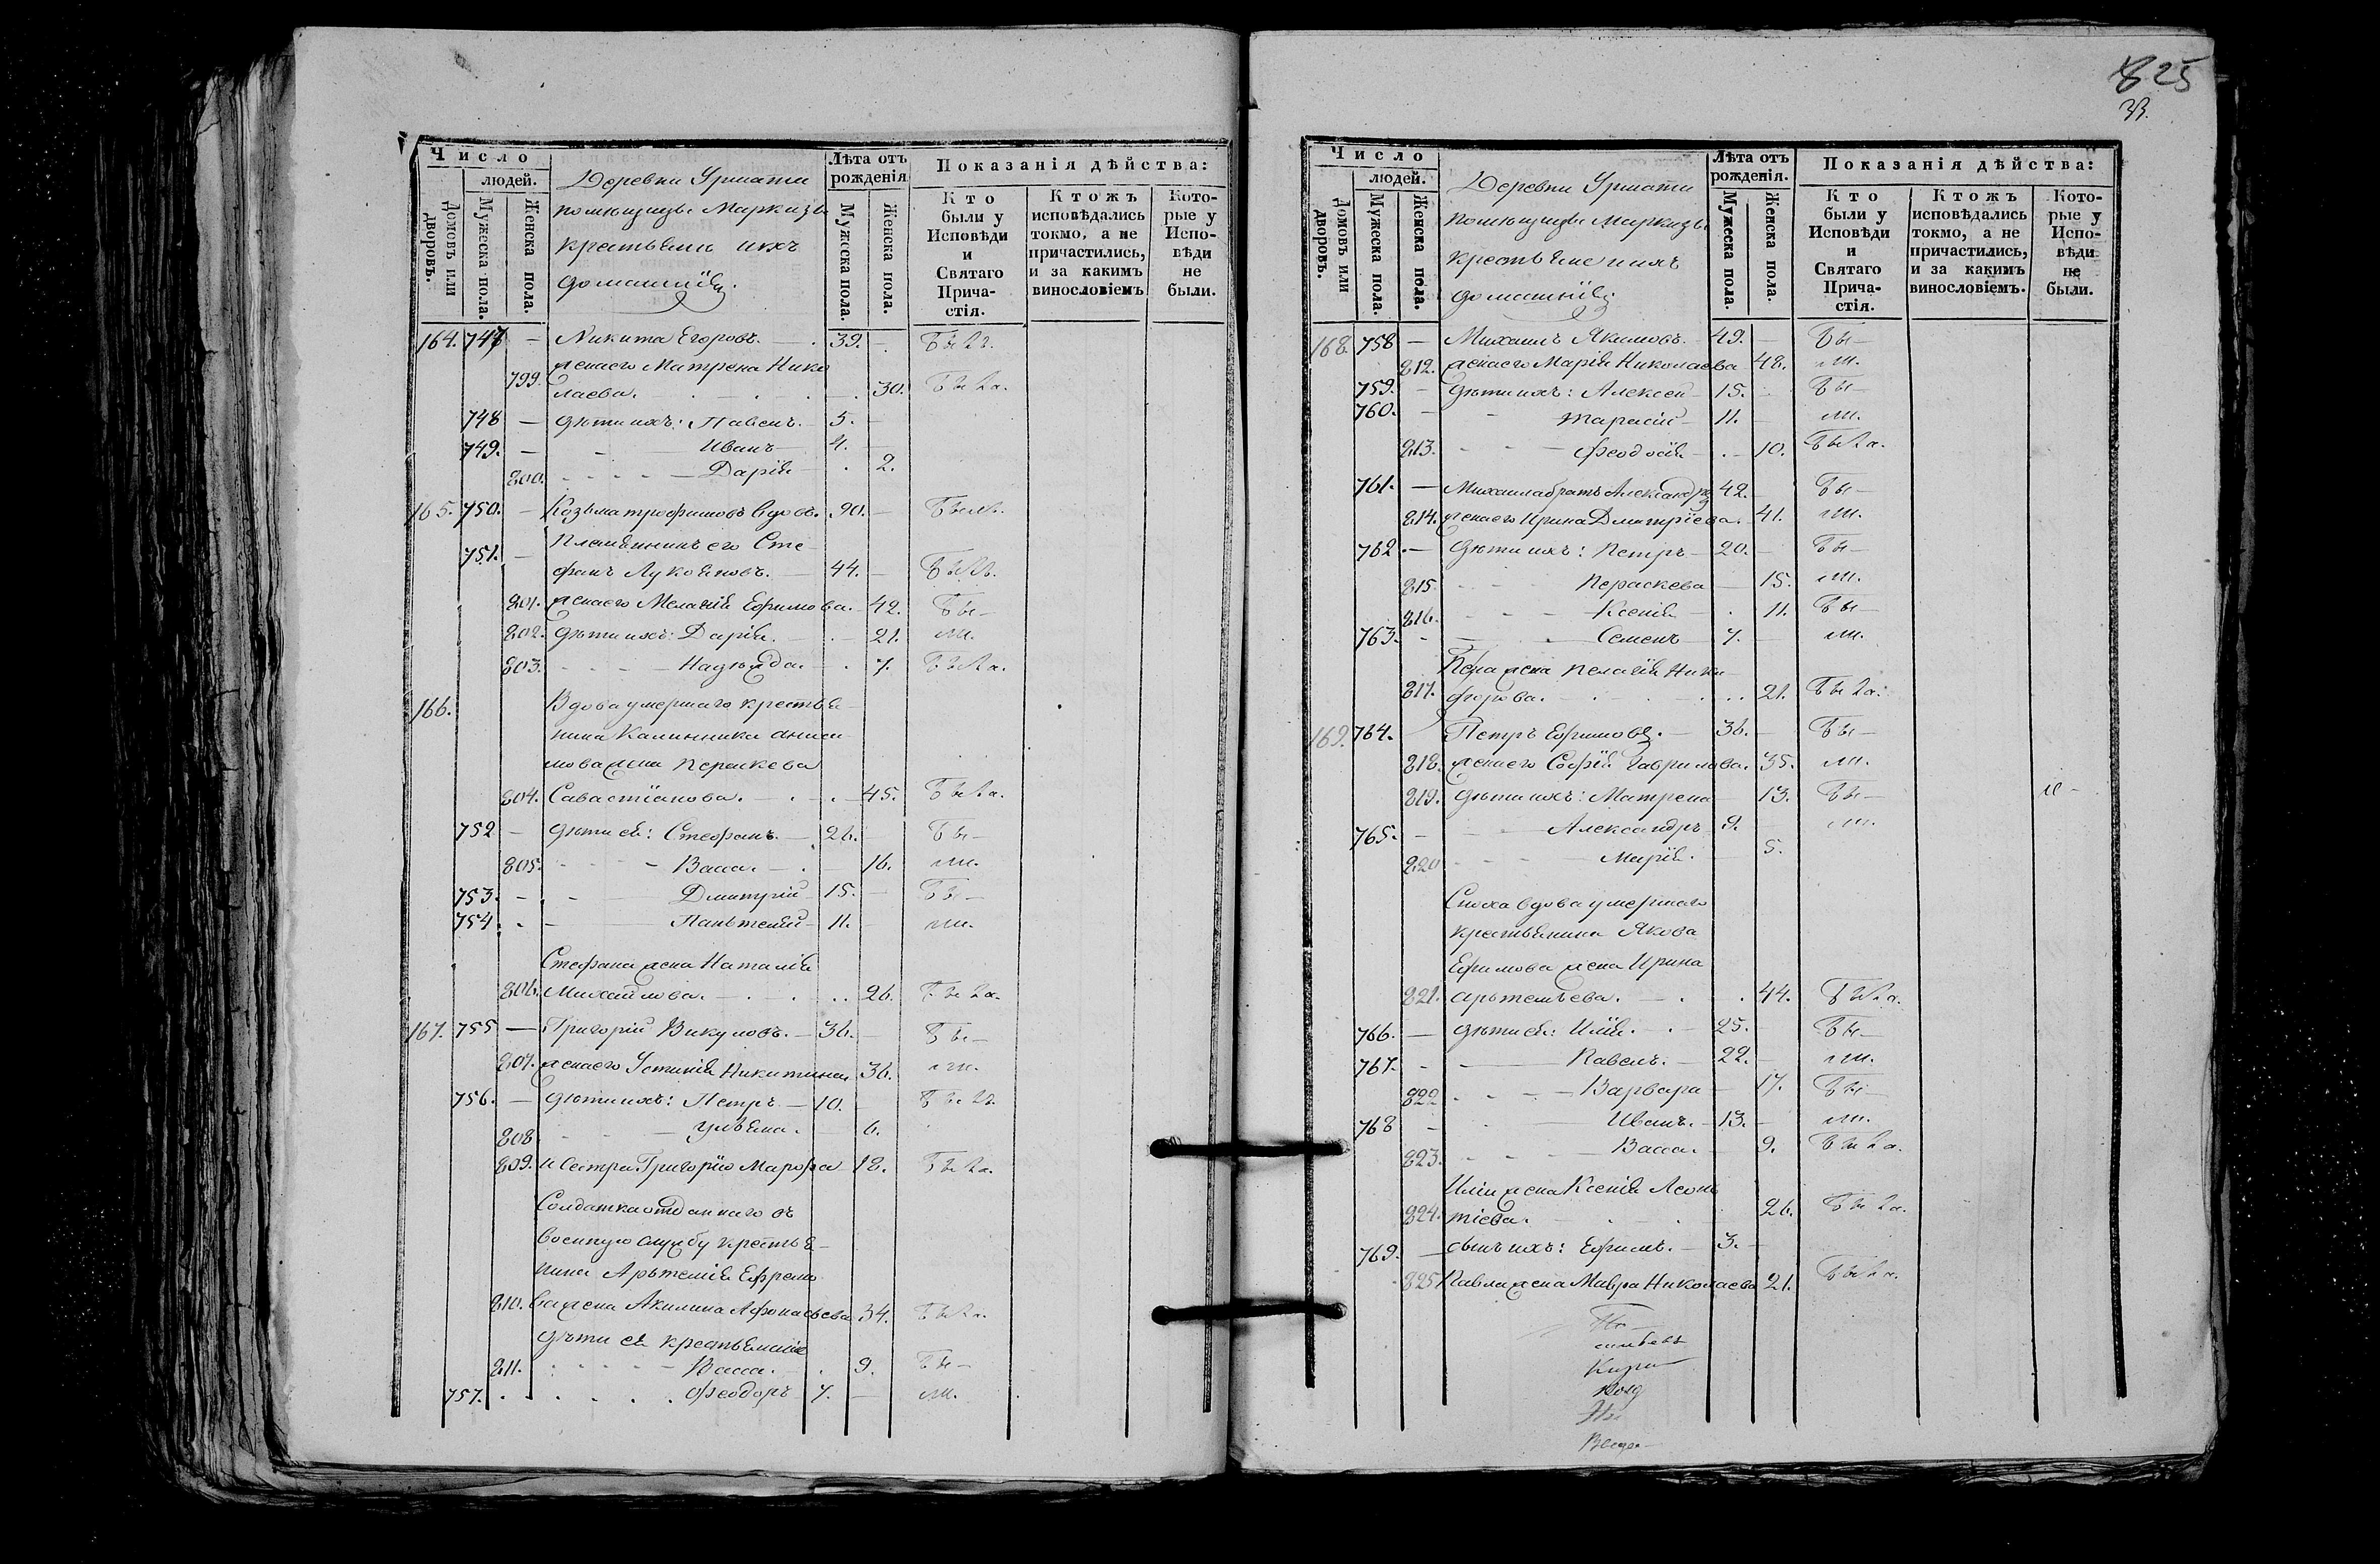 825
33.
Число
людей.
Домовъ или дворовъ.
Мужеска пола.
Женска пола.
Деревни Урмати
помѣщицы Маркизы
крестьяне ихъ
домашніи.
Лѣта отъ рожденія
Мужеска пола.
Женска пола.
Показанія дѣйства:
Кто были у Исповѣди и Святаго Прича-стія.
Ктожъ исповѣдались токмо, а не причастились, и за какимъ винословіемъ
Кото-рые у Испо-вѣди не были.
164. 747 — Никита Егоровъ. — 39. — былъ.
жена его Матрена Нико
799. лаева. 30. была.
748 — дѣти ихъ: Павелъ. 5. —
749. — Иванъ 4. —
800. Дарія 2.
165. 750. — Козьма Трофимовъ вдовъ. 90. — былъ.
Племянникъ его Сте-
751. — фанъ Лукояновъ. 44. — былъ.
801. жена его Меланія Ефимова. 42. бы-
802. дѣти ихъ: Дарія. 21. ли.
803. Надежда. 7. была.
166. Вдова умершаго крестья-
нина Калинника Аниси
мова жена Перескева
804. Савастіанова. 45. была.
752 — дѣти ея: Стефанъ. 26. бы-
805. Васса. 16. ли.
753. — Дмитрій 15. — бы-
754. Паньтелій 11. — ли.
Стефана жена Наталія
806. Михайлова. 26. была.
167. 755 — Григорій Викуловъ. — 36. — бы-
807. жена его Устинія Никитина 36. ли.
756. — дѣти ихъ: Петръ. — 10. былъ
808 Ульяна. 6.
809. и Сестра Григорію Марфа 18. была.
Солдатка отданнаго въ
военную службу крестья-
нина Арьтемія Ефремо
810. ва жена Акилина Афонасьева 34. была.
дѣти ея крестьянскіе
811. Васса. 9. бы-
757. Феодоръ 7. — ли.
Число
людей.
Домовъ или дворовъ.
Мужеска пола.
Женска пола.
Деревни Урмати
помѣщицы Маркизы
крестьяне и ихъ
домашніи.
Лѣта отъ рожденія.
Мужеска пола.
Женска пола.
Показанія дѣйства:
Кто были у Исповѣди и Святаго Прича-стія.
Ктожъ исповѣдались токмо, а не причастились, и за какимъ винословіемъ.
Кото-рые у Испо-вѣди не были.
168. 758 — Михаилъ Якимовъ. 49. — бы-
812. жена его Марія Николаева 48. ли.
759. — дѣти ихъ: Алексей 15. бы-
760. — Тарасій 11. ли.
813. Феодосія 10. была.
761. — Михаила братъ Александръ 42. бы-
814. жена его Ирина Дмитріева. 41. ли.
762. — дѣти ихъ: Петръ 20. — бы-
815. Пераскева 15. ли.
816. Ксенія 11. бы-
763. Семенъ 7. ли.
Петра жена Пелагія Ники
817. форова. 21. была.
169. 764. Петръ Ефимовъ. — 36. бы-
818. жена его Софія Гаврилова. 35. ли.
819. дѣти ихъ: Матрена 13. бы-
765. Александръ 9. ли.
820 Марія. 5.
Сноха вдова умершаго
крестьянина Якова
Ефимова жена Ирина
821. Арьтемьева. 44. была.
766. — дѣти ея: Илія. 25. бы-
767. Павелъ. 22. ли.
822 Варвара 17. бы-
768 Иванъ. 13. ли.
823. Васса. 9. была.
Иліи жена Ксенія Леонь
824. тіева. 26. была.
769. — сынъ ихъ: Ефимъ. 3.
825 Павла жена Мавра Николаева 21. была.